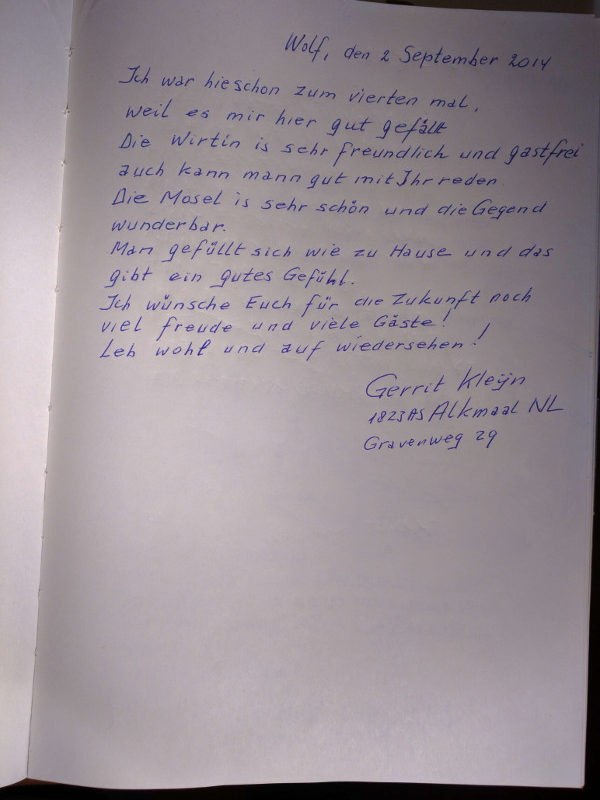 Wolf, den 2 September 2014
Ich war hieschon zum vierten mal,
weil es mir hier gut gefällt
Die Wirtin is sehr freundlich und gastfrei
auch kann mann gut mit Ihr reden
Die Mosel is sehr schön und die Gegend
wunderbar.
Man gefüllt sich wie zu Hause und das
gibt ein gutes Gefühl.
Ich wünsche Euch für die Zukunft noch
viel freude und viele Gäste!
Leb wohl und auf wiedersehen!
Gerrit Kleijn
1823AS Alkmaal NL
Gravenweg 29